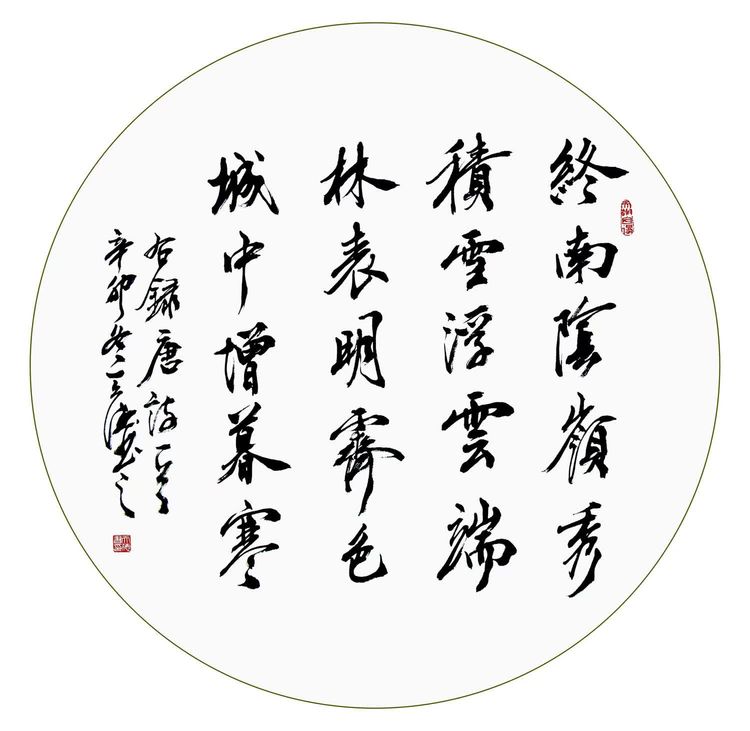 終南陰嶺秀
積雪浮雲端
林表明霽色
城中增暮寒
右錄唐詩一首
辛卯冬一